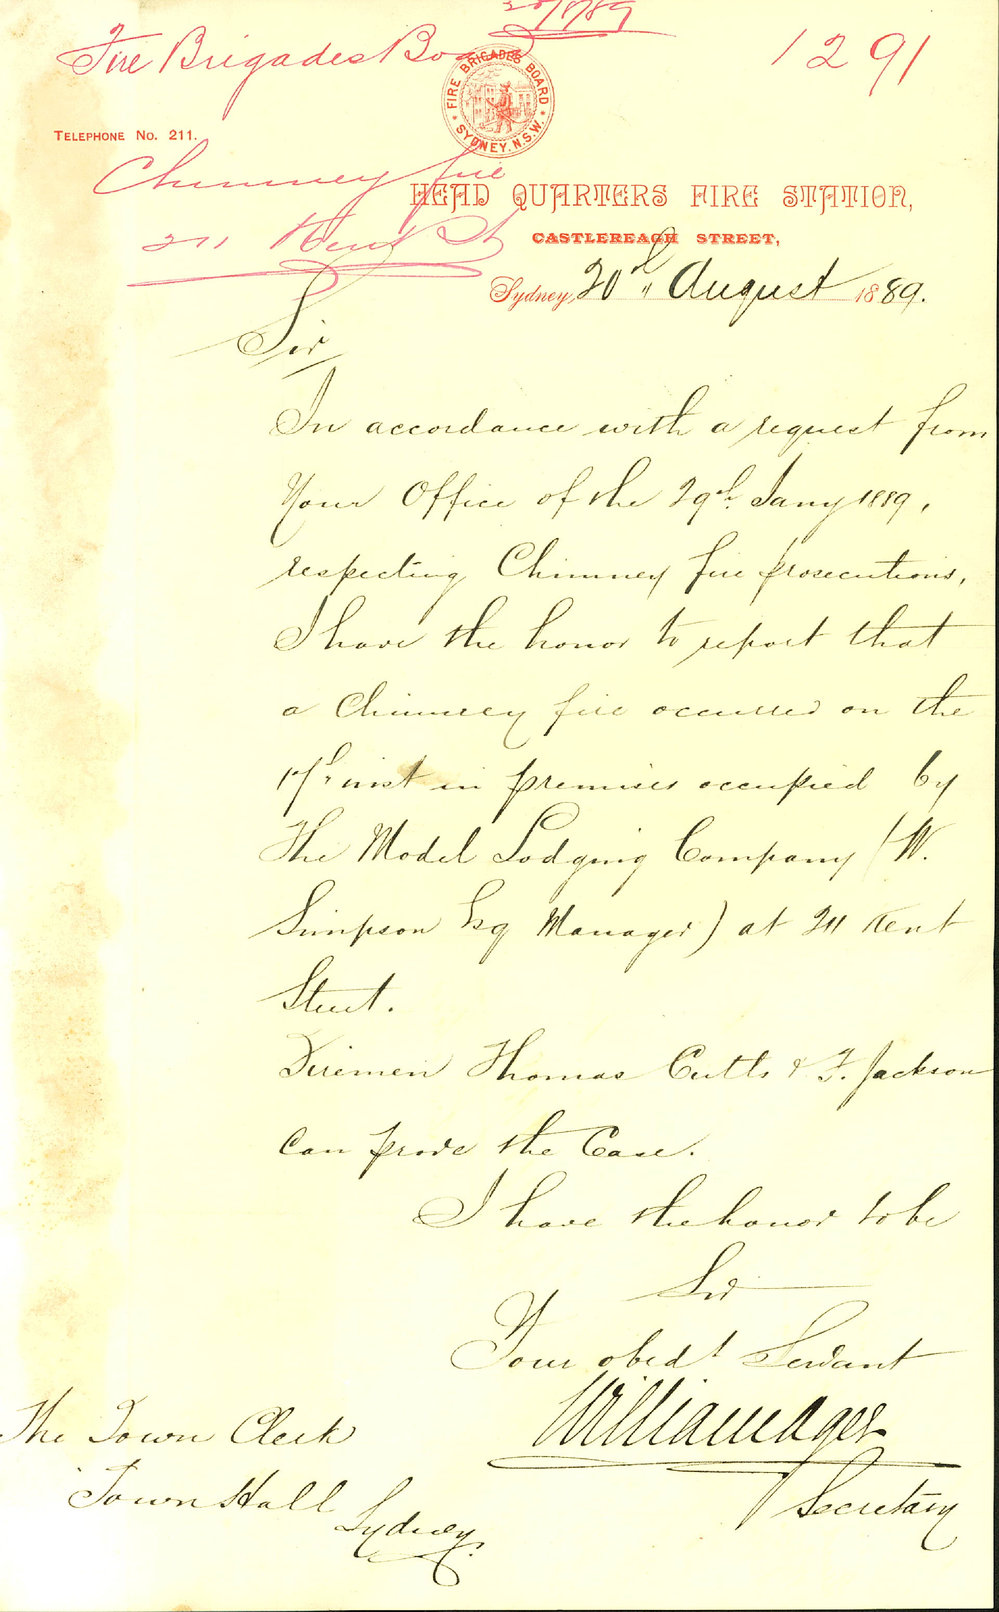 20/8/89
Fire Brigades Bo
1291
FIRE BRIGADES BOARD
SYDNEY. N.S.W.
TELEPHONE NO. 211.
Chimney fire
211 Kent St
HEAD QUARTERS FIRE STATION,
CASTLEREAGH STREET,
Sydney, 20th August 1889.
Sir
In accordance with a request from
Your Office of the 29th Jany 1889,
respecting Chimney fire prosecutions,
I have the honor to report that
a Chimney fire occurred on the
17th inst in premises occupied by
The Model Lodging Company (W.
Simpson Esq Manager) at 211 Kent
Street.
Firemen Thomas Cutts & F. Jackson
can prove the Case.
I have the honor to be
Sir
Your obedt Servant
William Ager
Secretary
The Town Clerk
Town Hall
Sydney.